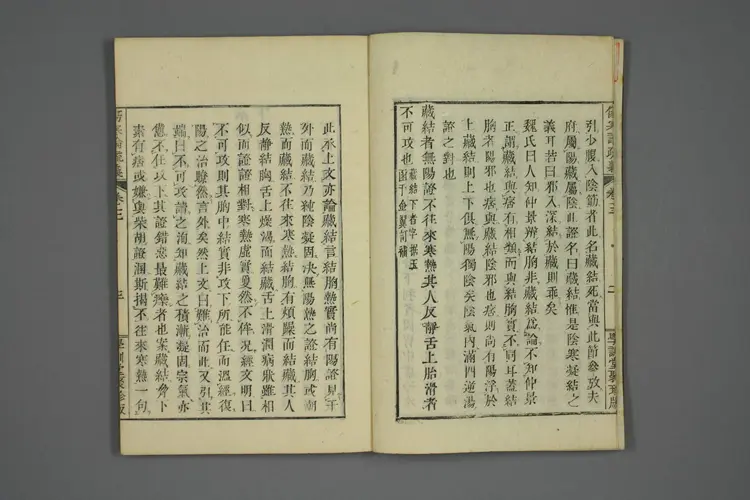 傷寒論疏義 卷三 二 學訓堂聚珍版
引少腹入陰筋者此名藏結死當與此節參攷夫
府屬陽藏屬陰此證名曰藏結惟是陰寒凝結之
義耳若曰邪入深結於藏則乖矣
魏氏曰人知仲景辨結胸非藏結爲論不知仲景
正謂藏結與痞有相類而與結胸實不同耳蓋結
胸者陽邪也痞與藏結陰邪也痞則尚有陽浮於
上藏結則上下俱無陽獨陰矣陰氣內滿四逆湯
證之對也
藏結者無陽證不往來寒熱其人反靜舌上胎滑者
不可攻也 藏結下者字據玉
函千金翼訂補
此承上文亦論藏結言結胸熱實尚有陽證見于
外而藏結乃純陰凝固決無陽熱之證結胸或潮
熱而藏結不往來寒熱結胸有煩躁而結藏其人
反靜結胸舌上燥渴而結藏舌上滑潤病狀雖相
似而證證相對寒熱虛實敻然不侔況經文明曰
不可攻則其胸中結實非攻下所能任而溫經復
陽之治隱然言外矣然上文曰難治而此又引其
端曰不可攻讀之洵知藏結之積漸凝固宗氣亦
憊不任攻下其證錯惡最難療者也案藏結脅下
素有痞或嫌與柴胡證溷斯揭不往來寒熱一句
傷寒論疏義 卷三 三 學訓堂聚珍版